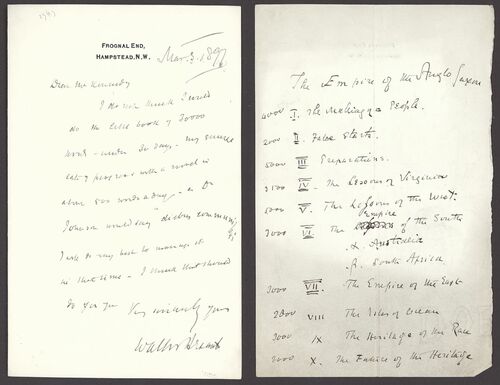 FROGNAL END,
HAMPSTEAD, N.W.
Mar. 3. 1897
Dear Mr Kennedy
I do not think I could
do the little book of 30000
words – under 30 days – my
rate of progress with a novel is
about 800 words a day – as Dr
Johnson would say
I will do my very best to manage it
in that time – I think that should
do for you Very sincerely yours
Walter Besant
The Empire of the Anglo Saxon
4000 I. The Making of a People.
2000 II. False Starts.
5000 III Preparations.
2500 IV. The Lessons of Virginia
5000 V. The Lessons of the West.
Empire
3000 VI. The of the South
α. Australia
β. South Africa
3000 VII. The Empire of the East
2000 VIII The Isles of Ocean
3000 IX The Heritage of the Race
2000 X. The Future of the Heritage